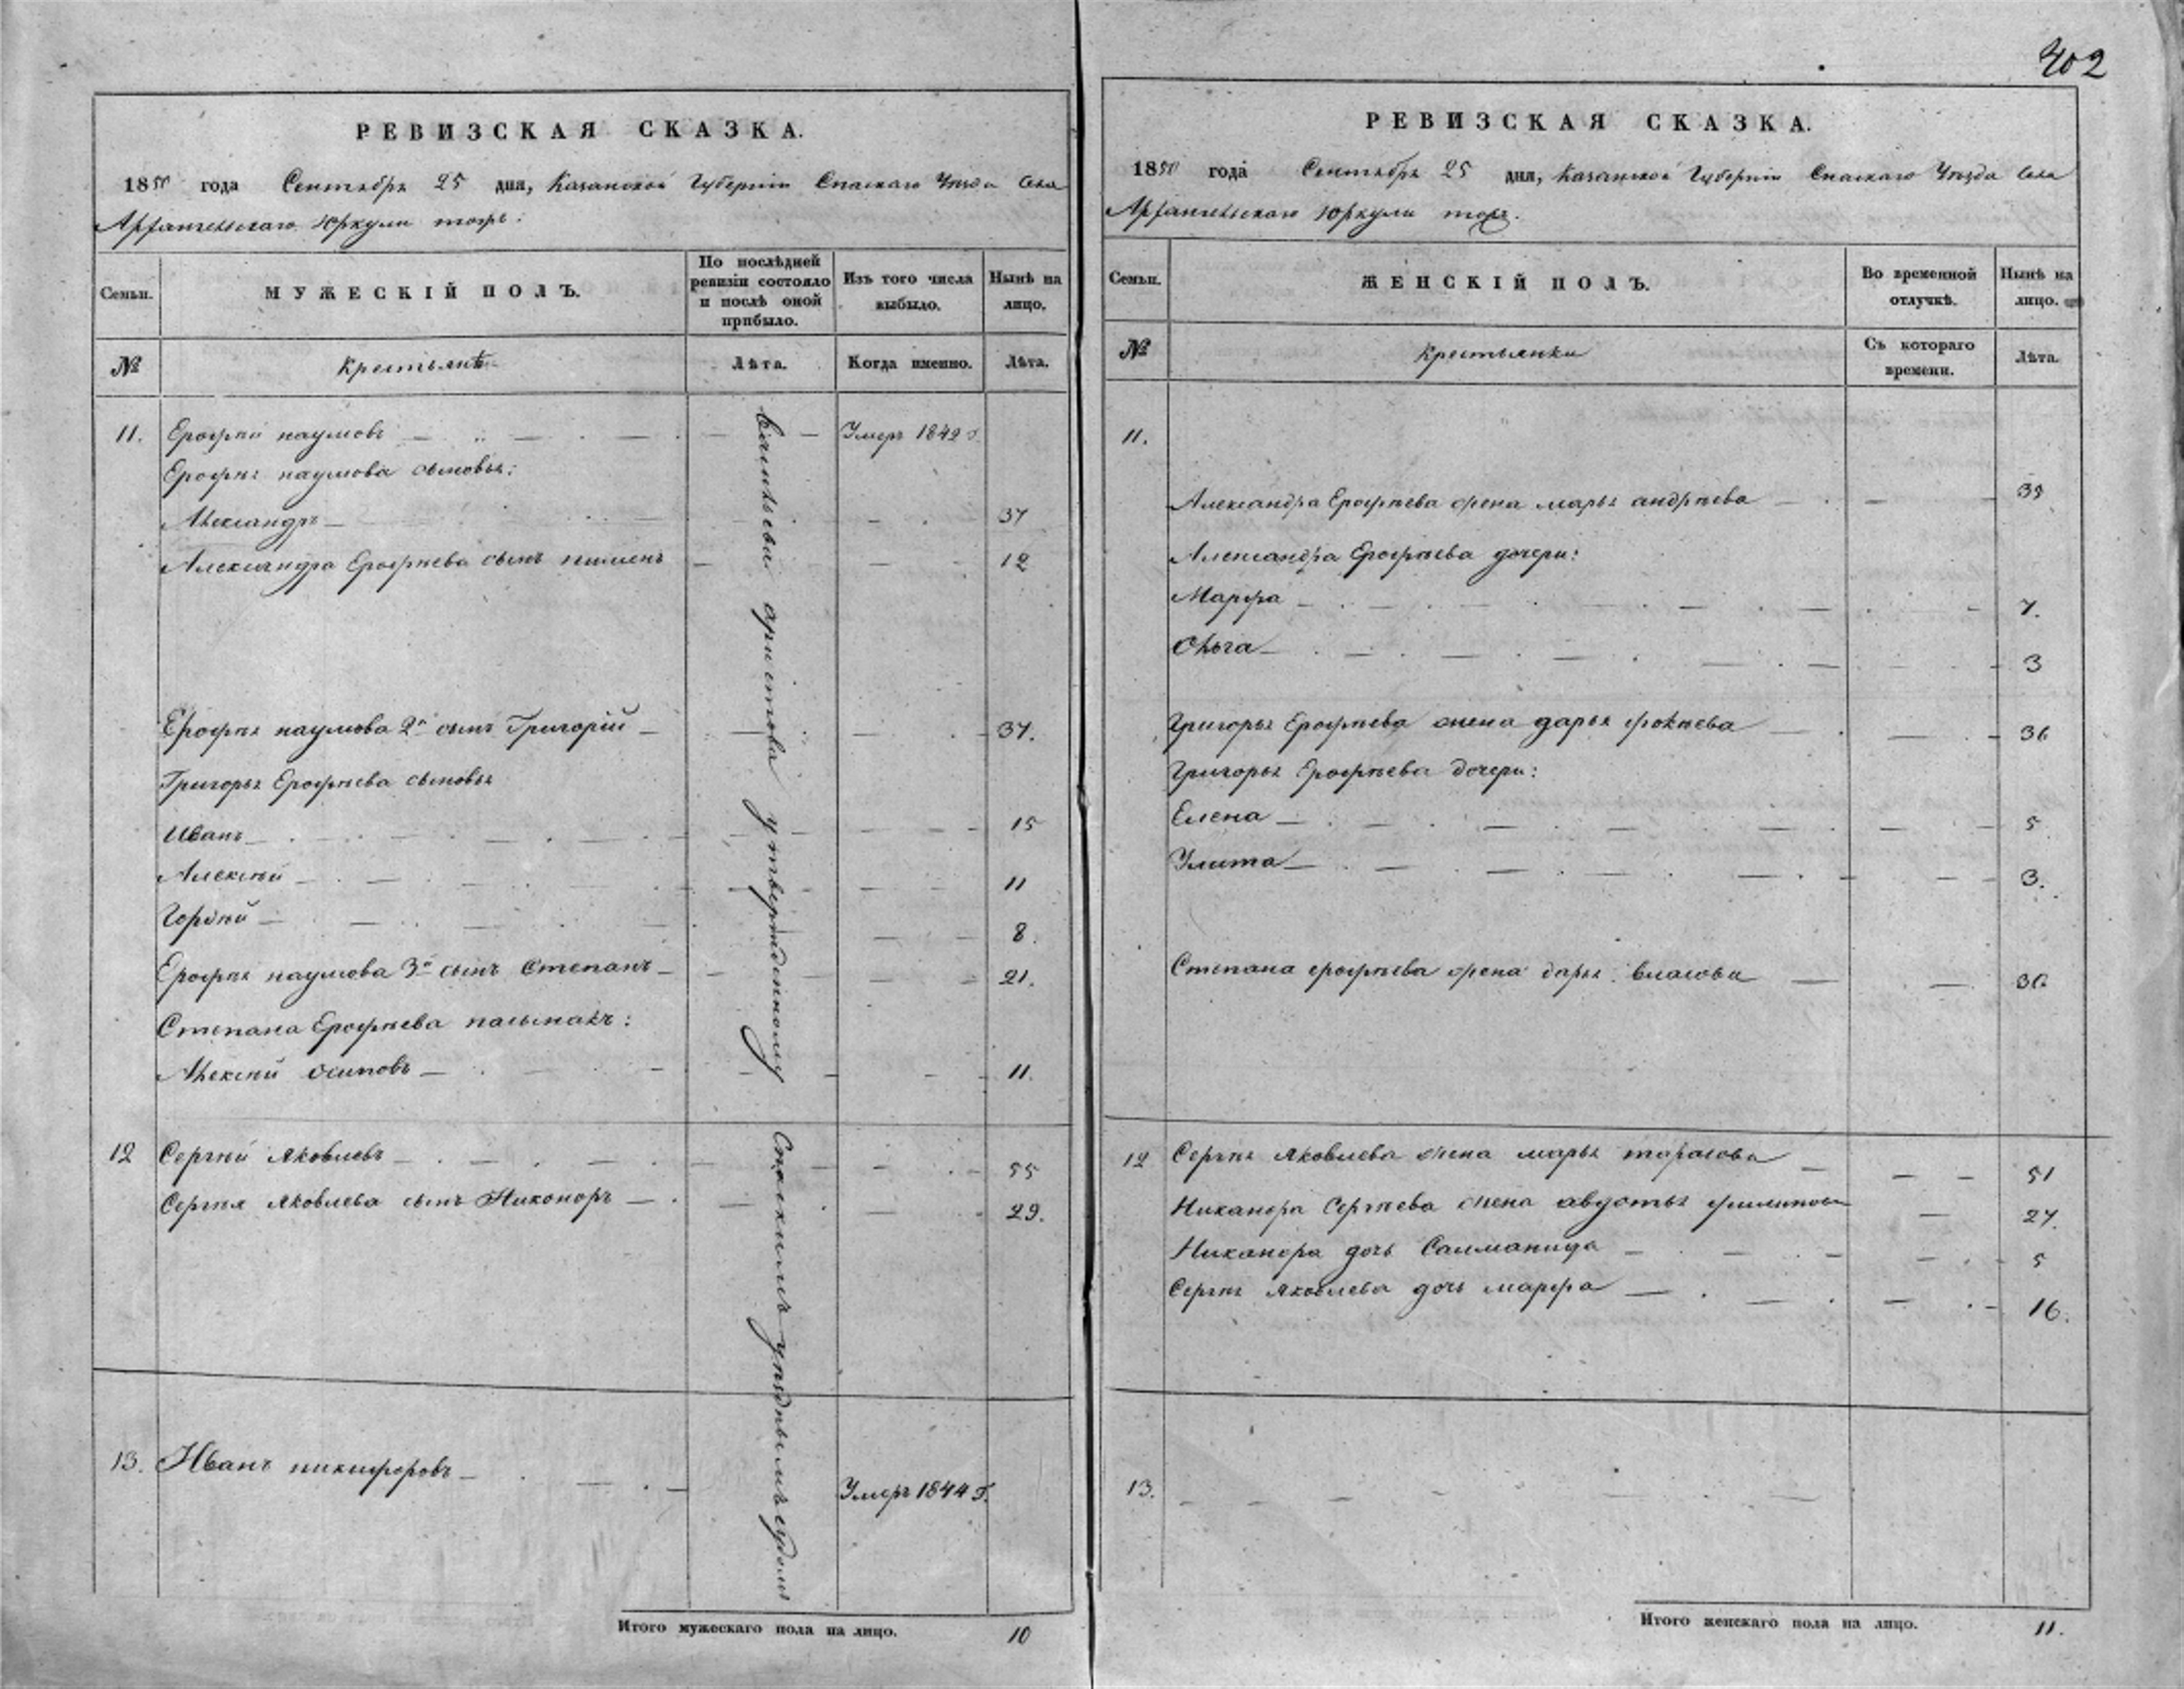 402
РЕВИЗСКАЯ СКАЗКА.
1850 года Сентября 25 дня, Казанской Губернiи Спаскаго Уѣзда Села
Архангельскаго Юркули тожъ.
Семьи.
МУЖЕСКIЙ ПОЛЪ.
По послѣдней ревизiи состояло и послѣ оной прибыло.
Изъ того числа выбыло.
Нынѣ на лицо.
№
Крестьянѣ
Лѣта.
Когда именно.
Лѣта.
11. Ерофей наумовъ Умеръ 1842 г.
Ерофея наумова сыновья:
Александръ 37
Александра Ерофѣева сынъ пименъ 12
Ерофея наумова 2й сынъ Григорiй 37.
Григорья Ерофѣева сыновья
Иванъ 15
Алексѣй 11
Гордѣй 8.
Ерофея наумова 3й сынъ Степанъ 21.
Степана Ерофѣева пасынакъ:
Алексѣй осиповъ 11.
12 Сергѣй Яковлевъ 55
Сергѣя Яковлева сынъ Никоноръ 29.
13. Иванъ никифоровъ Умеръ 1844 г.
аристова утвержденному
Спаскимъ уѣзднымъ судомъ
Итого мужескаго пола на лицо. 10
РЕВИЗСКАЯ СКАЗКА.
1850 года Сентября 25 дня, Казанской Губернiи Спаскаго Уѣзда Села
Архангельскаго Юркули тожъ.
Семьи.
ЖЕНСКIЙ ПОЛЪ.
Во временной отлучкѣ.
Нынѣ на лицо.
№
Крестьянки
Съ котораго времени.
Лѣта.
11.
Александра Ерофѣева жена марья андрѣева
Александра Ерофѣева дочери:
Марфа 7.
Ольга 3
Григорья Ерофѣева жена дарья фокѣева 36
Григорья Ерофѣева дочери:
Елена 5
Улита 3.
Степана ерофѣева жена дарья власова
12 Сергѣя Яковлева жена марья тарасова 51
Никанора Сергѣева жена авдотья филипова 27.
Никанора дочь Саломанида 5
Сергѣя Яковлева дочь марфа 16.
13.
Итого женскаго пола на лицо. 11.